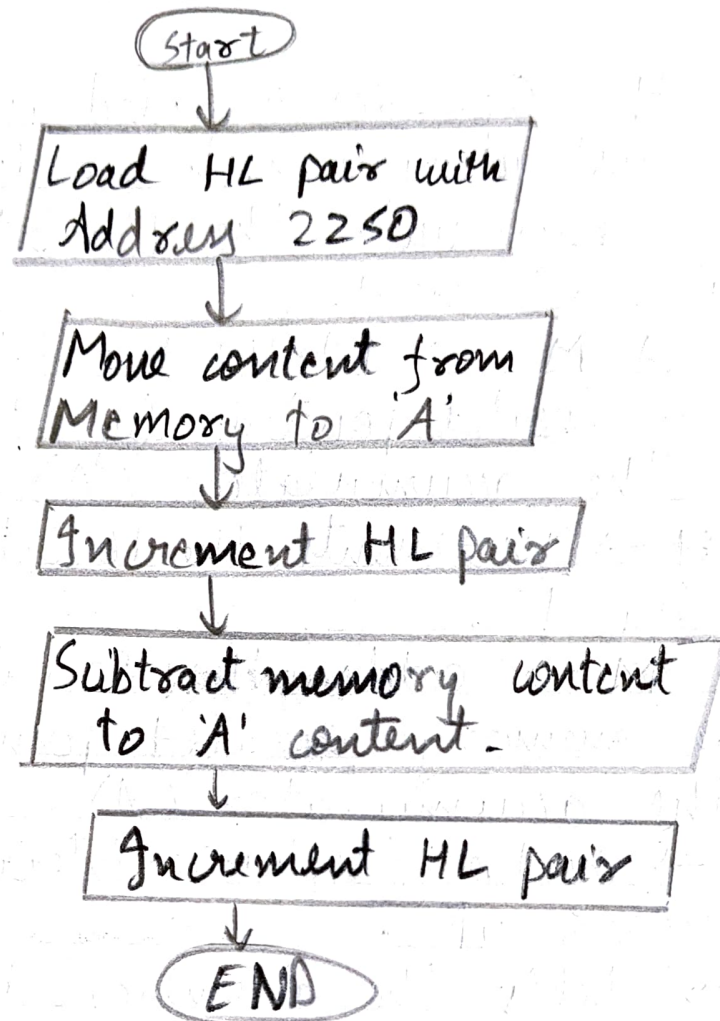 Start
Load HL pair with
Address 2250
Move content from
Memory to 'A'
Increment HL pair
Subtract memory content
to 'A' content.
Increment HL pair
END